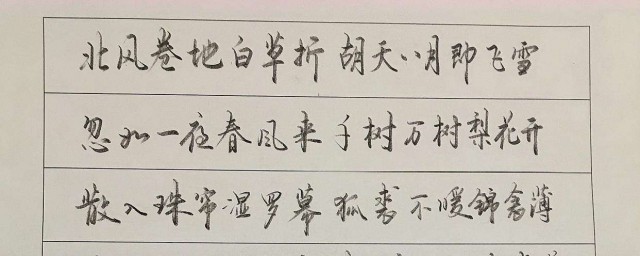 北风卷地白草折 胡天八月即飞雪
忽如一夜春风来 千树万树梨花开
散入珠帘湿罗幕 狐裘不暖锦衾薄